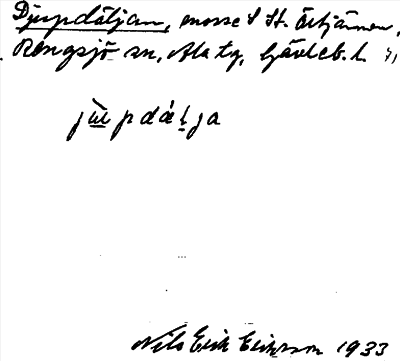 Djupdäljan, mosse S St. Örtjärnen,
Rengsjö sn, Ala tg, Gävleb. l.
jùpdálja
Nils Erik Eriksson 1933